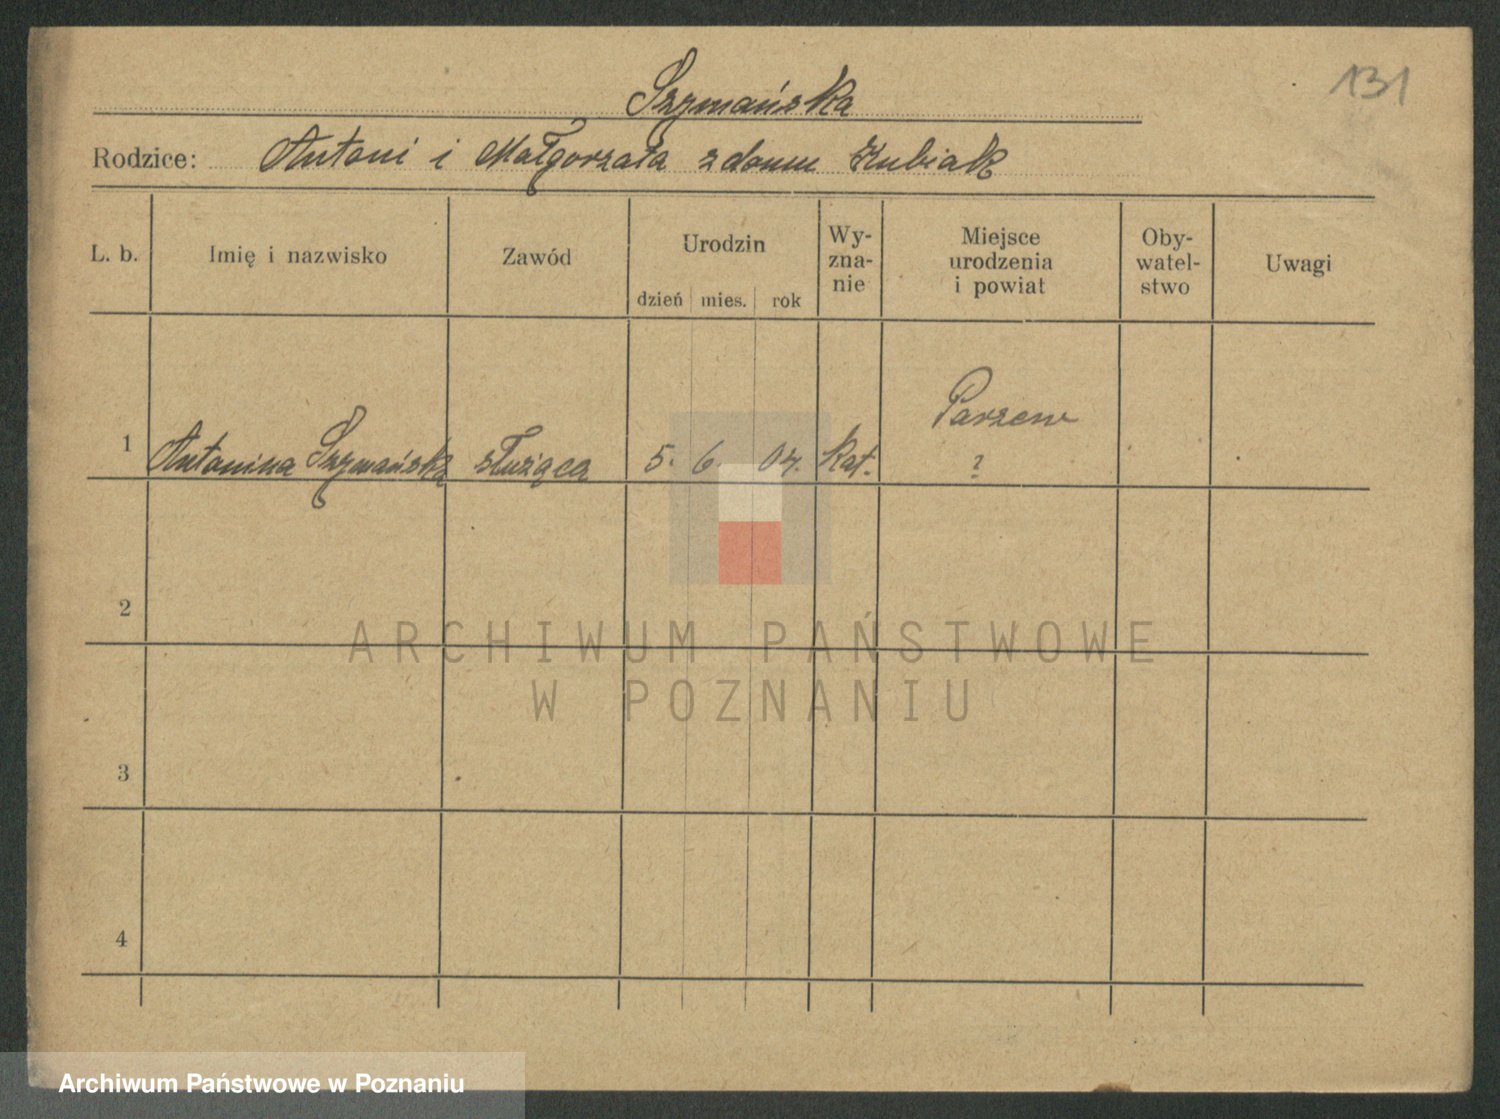 131
Szymańska
Rodzice: Antoni i Małgorzata z domu Kubiak
L. b. Imię i nazwisko Zawód Urodzin dzień mies. rok Wy-zna-nie Miejsce urodzenia i powiat Oby-watel-stwo Uwagi
Parzew
1 Antonina Szymańska służąca 5. 6. 04. kat. ?
2
ARCHIWUM PAŃSTWOWE
W POZNANIU
3
4
Archiwum Państwowe w Poznaniu